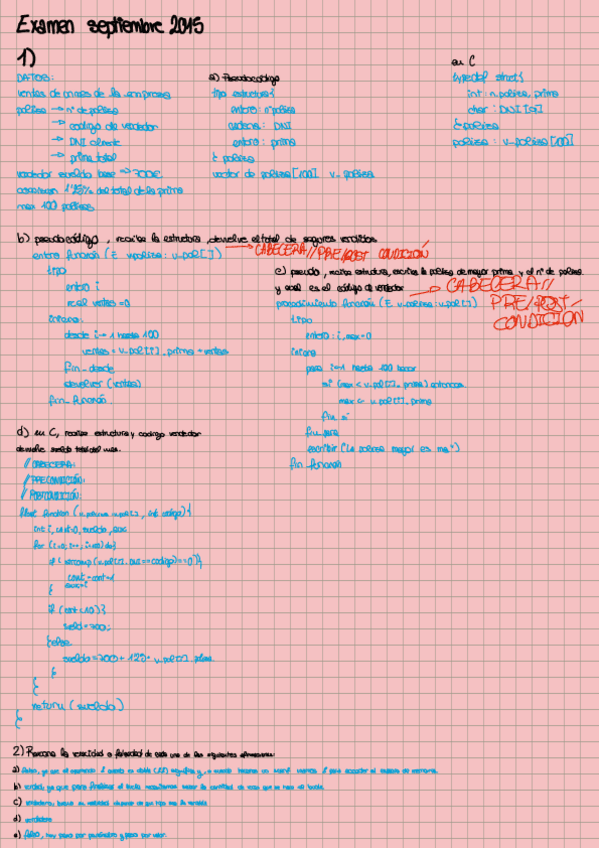 Examen septiembre 2015
1)
DATOS:
ventas de de la empresa
poliza → nº de poliza
→ codigo de vendedor
→ DNI cliente
→ prima total
vendedor sueldo base → 700€
1'25% del total de la prima
max 100 polizas
a) Pseudocódigo
tipo estructura{
entero: nºpoliza
cadena: DNI
entero: prima
} poliza
vector de poliza[100] v_poliza
en C
typedef struct{
int: n_poliza, prima
char: DNI[9]
} poliza
poliza: v_poliza[100]
b) pseudocódigo, reciba la estructura, devuelve el total de seguros vendidos
→ CABECERA//PRE/POST CONDICIÓN
entero función (E vpoliza: v_pol[])
tipo
entero i
real ventas=0
inicio:
desde i→1 hasta 100
ventas = v_pol[i].prima + ventas
fin_desde
devolver (ventas)
fin_función
c) pseudo, reciba estructura, escriba la poliza de mayor prima y el nº de poliza
y cual es el código de vendedor → CABECERA//
PRE/POST/
CONDICION
procedimiento función (E v_poliza: v_pol[])
tipo
entero: i, max=0
inicio
para i=1 hasta 100 hacer
si (max < v_pol[i].prima) entonces
max ← v_pol[i].prima
fin si
fin_para
escribir ("La poliza mayor es
fin_función
d) en C, reciba estructura y codigo vendedor
devuelve sueldo total del mes.
//CABECERA:
//PRECONDICIÓN:
//POSTCONDICIÓN:
float function (
int i, cont=0, sueldo,
for (i=0; i++; i<100) do{
if ( strcmp(v_pol[i]. ==codigo)==0"){
cont = cont+1
}
if (cont<10){
sueld=700;
}else
sueldo=700+125* v_pol[i].
}
}
return (sueldo)
}
2) Razona la veracidad o falsedad de cada una de las siguientes afirmaciones
a) falso, ya que
b) verdad, ya que para finalizar el bucle necesitamos saber la cantidad de veces que se hace el bucle.
c) verdadero,
d) verdadero
e) falso, hay paso por parámetro y paso por valor.